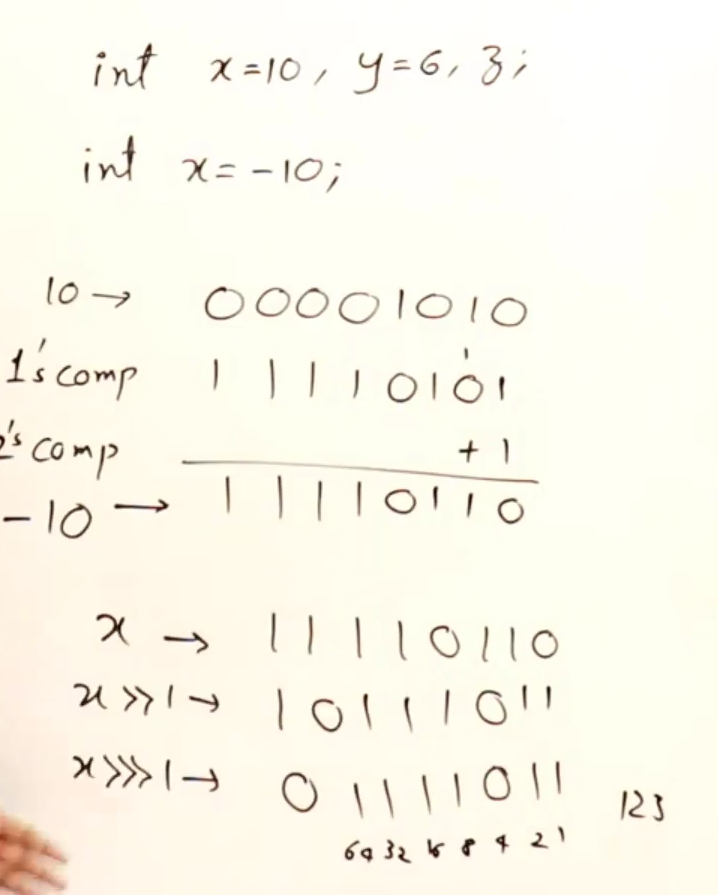 int x=10, y=6, z;
int x=-10;
10→ 00001010
1
1's comp 11110101
2's comp +1
-10→ 11110110
x→ 11110110
x>>1→ 10111011
x>>>1→ 01111011 123
64 32 16 8 4 2 1